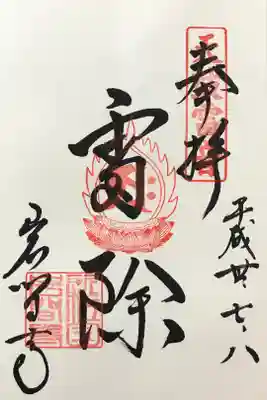 奉拝
平成廿、七、八
雷除
岩間寺